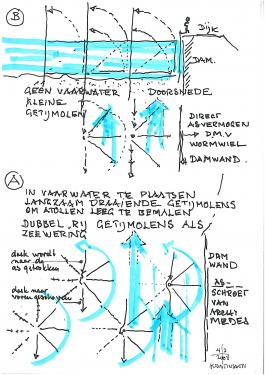 B
DIJK
DAM.
GEEN VAARWATER
KLEINE
GETIJMOLEN
DOORSNEDE
DIRECT
ASVERMOGEN
→ D.M.V
WORMWIEL
DAMWAND.
A
IN VAARWATER TE PLAATSEN
LANGZAAM DRAAIENDE GETIJMOLENS
OM ATOLLEN LEEG TE BEMALEN
DUBBEL RIJ GETIJMOLENS ALS
ZEEWERING
doek wordt
naar de
as getrokken
doek naar
voren
DAM
WAND
AS
SCHROEF
VAN
ARCHI
MEDES